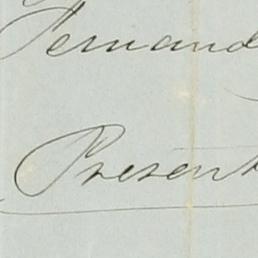 Fernand
Present